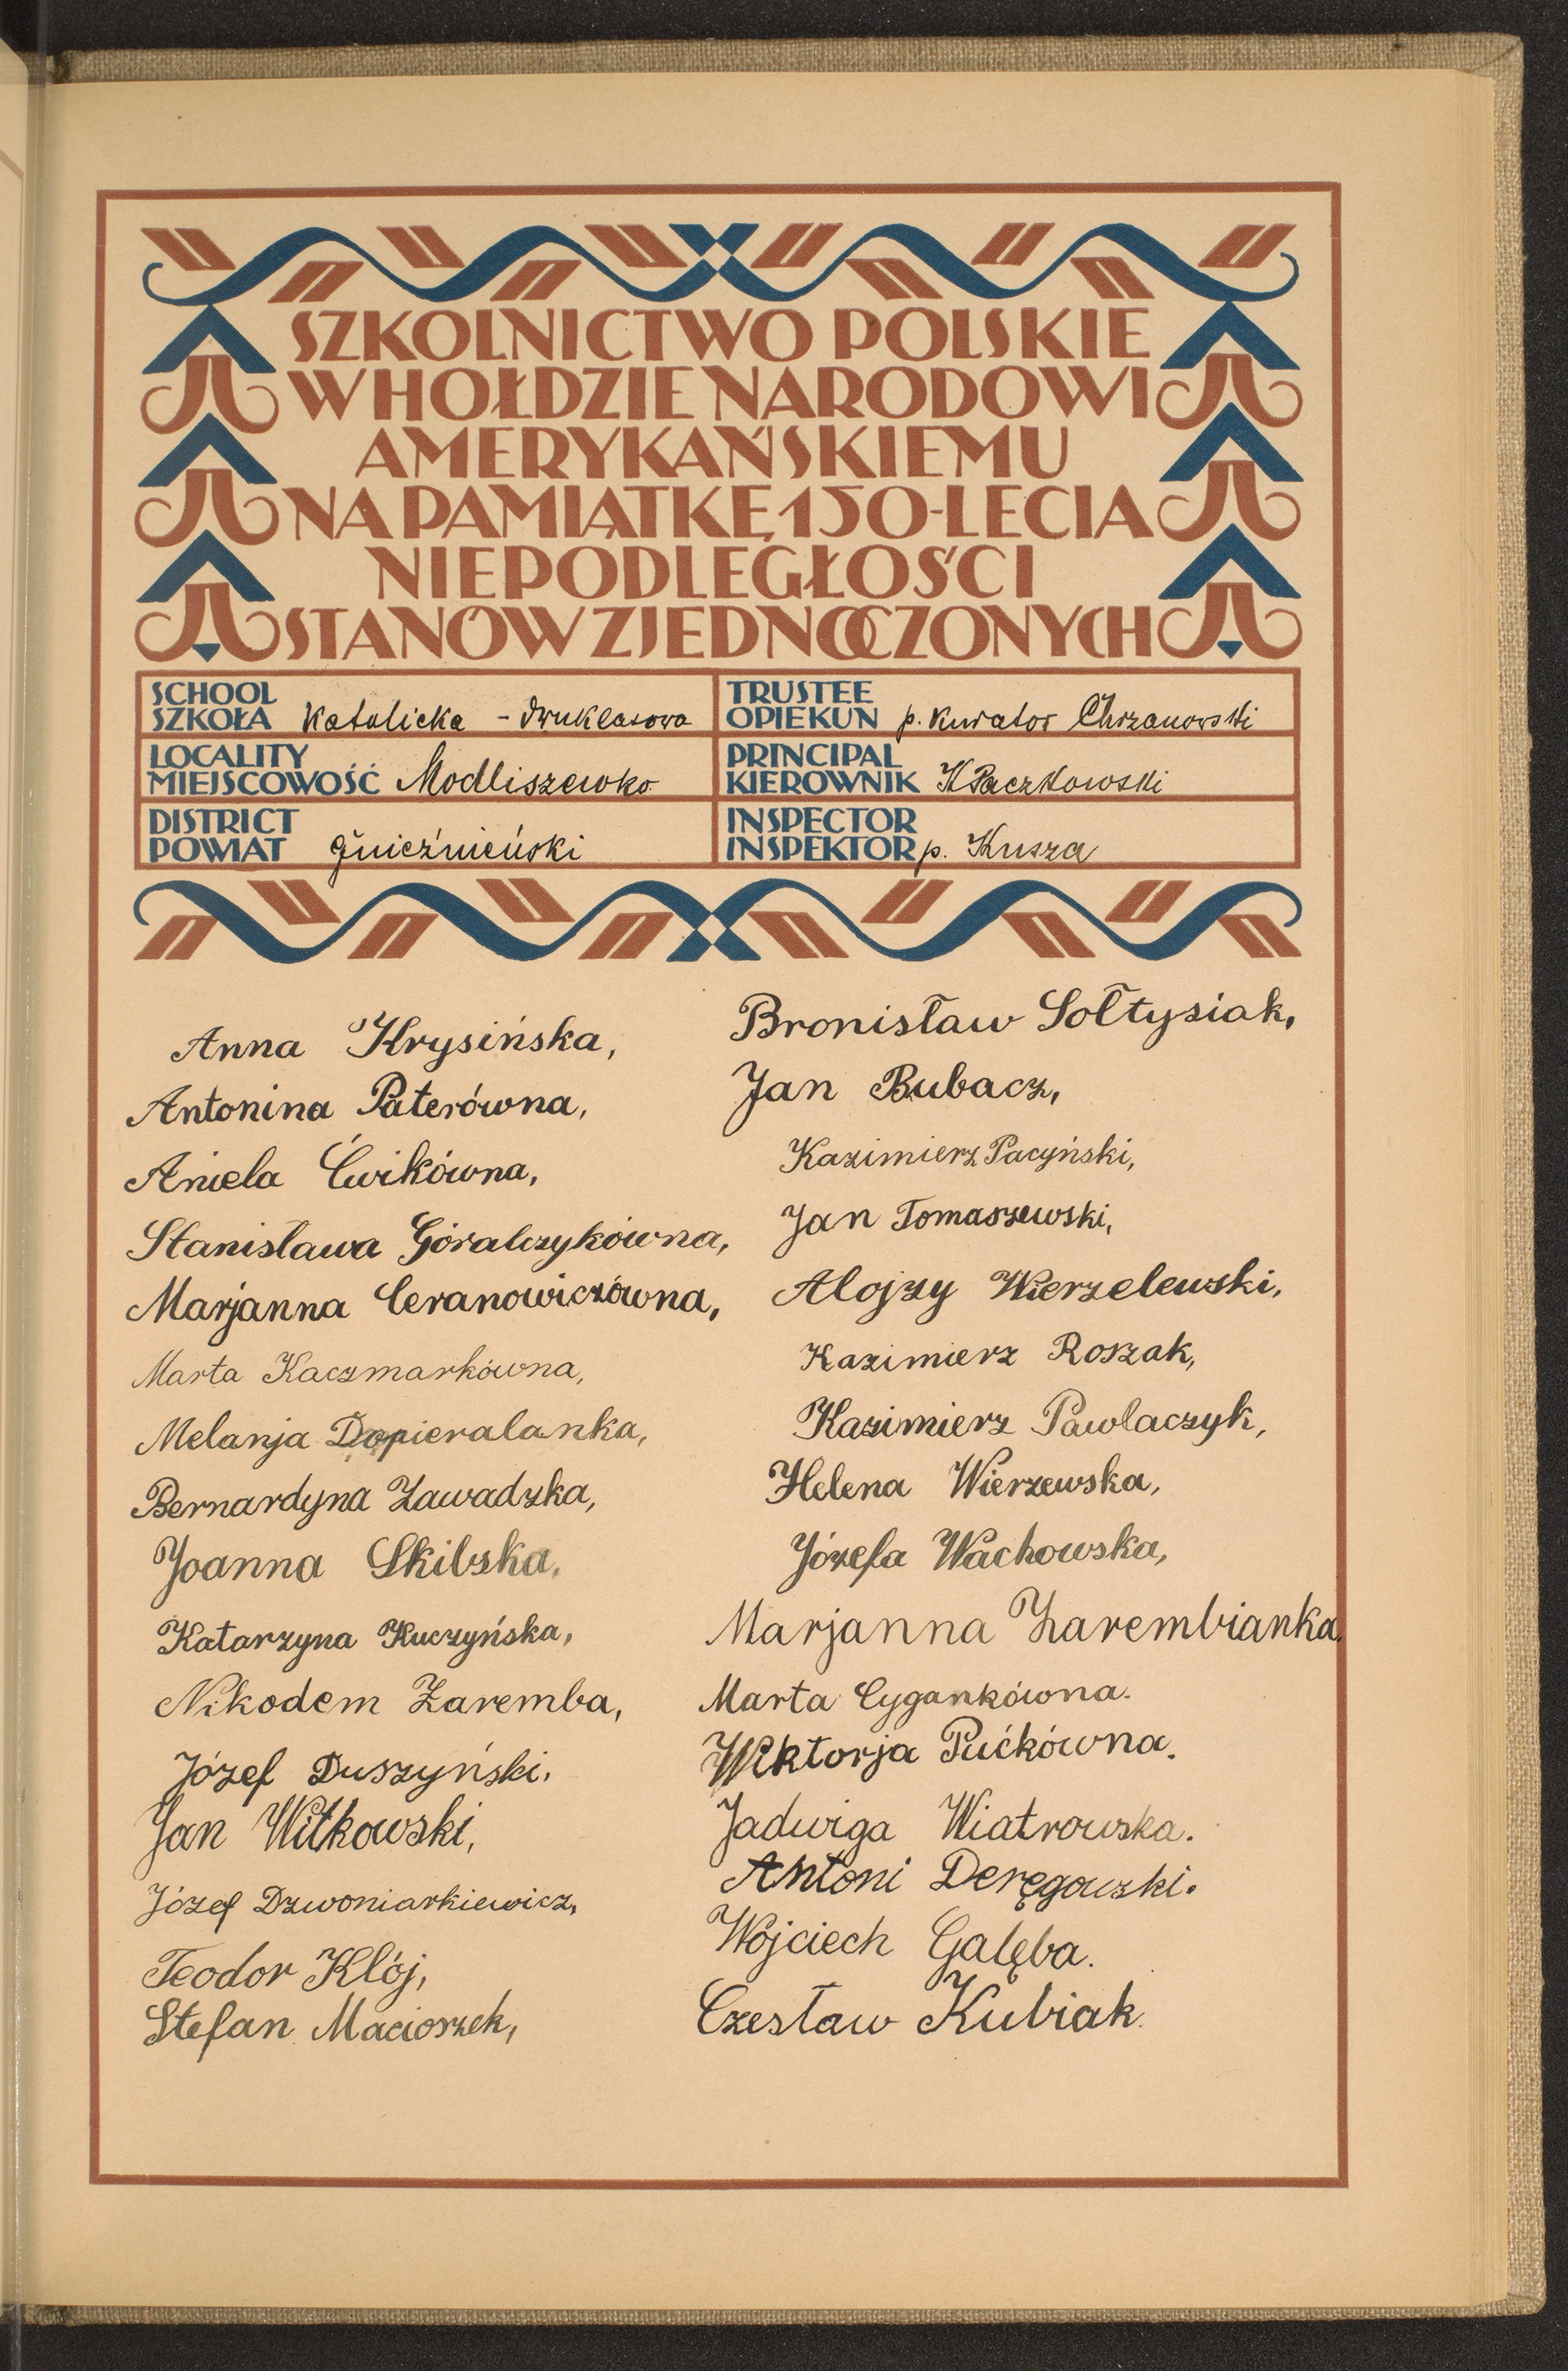 SZKOLNICTWO POLSKIE
W HOŁDZIE NARODOWI
AMERYKAŃSKIEMU
NA PAMIĄTKĘ 150-LECIA
NIEPODLEGŁOŚCI
STANÓW ZJEDNOCZONYCH
SCHOOL
SZKOŁA Katolicka - dwuklasowa
LOCALITY
MIEJSCOWOŚĆ Modliszewko
DISTRICT
POWIAT gnieźnieński
TRUSTEE
OPIEKUN p. Kurator Chrzanowski
PRINCIPAL
KIEROWNIK K Paczkowski
INSPECTOR
INSPEKTOR p. Kusza
Anna Krysińska,
Antonina Paterówna,
Aniela Ćwikówna,
Stanisława Góralczykówna,
Marjanna Ceranowiczówna,
Marta Kaczmarkówna,
Melanja Dopieralanka,
Bernardyna Zawadzka,
Joanna Skibska,
Katarzyna Kuczyńska,
Nikodem Zaremba,
Józef Duszyński,
Jan Witkowski,
Józef Dzwoniarkiewicz,
Teodor Klój,
Stefan Maciorzek,
Bronisław Sołtysiak,
Jan Bubacz,
Kazimierz Pacyński,
Jan Tomaszewski,
Alojzy Wierzelewski,
Kazimierz Roszak,
Kazimierz Pawlaczyk,
Helena Wierzewska,
Józefa Wachowska,
Marjanna Zarembianka.
Marta Cygankówna.
Wiktorja Pućkówna.
Jadwiga Wiatrowska.
Antoni Deręgowski.
Wojciech Galęba.
Czesław Kubiak.